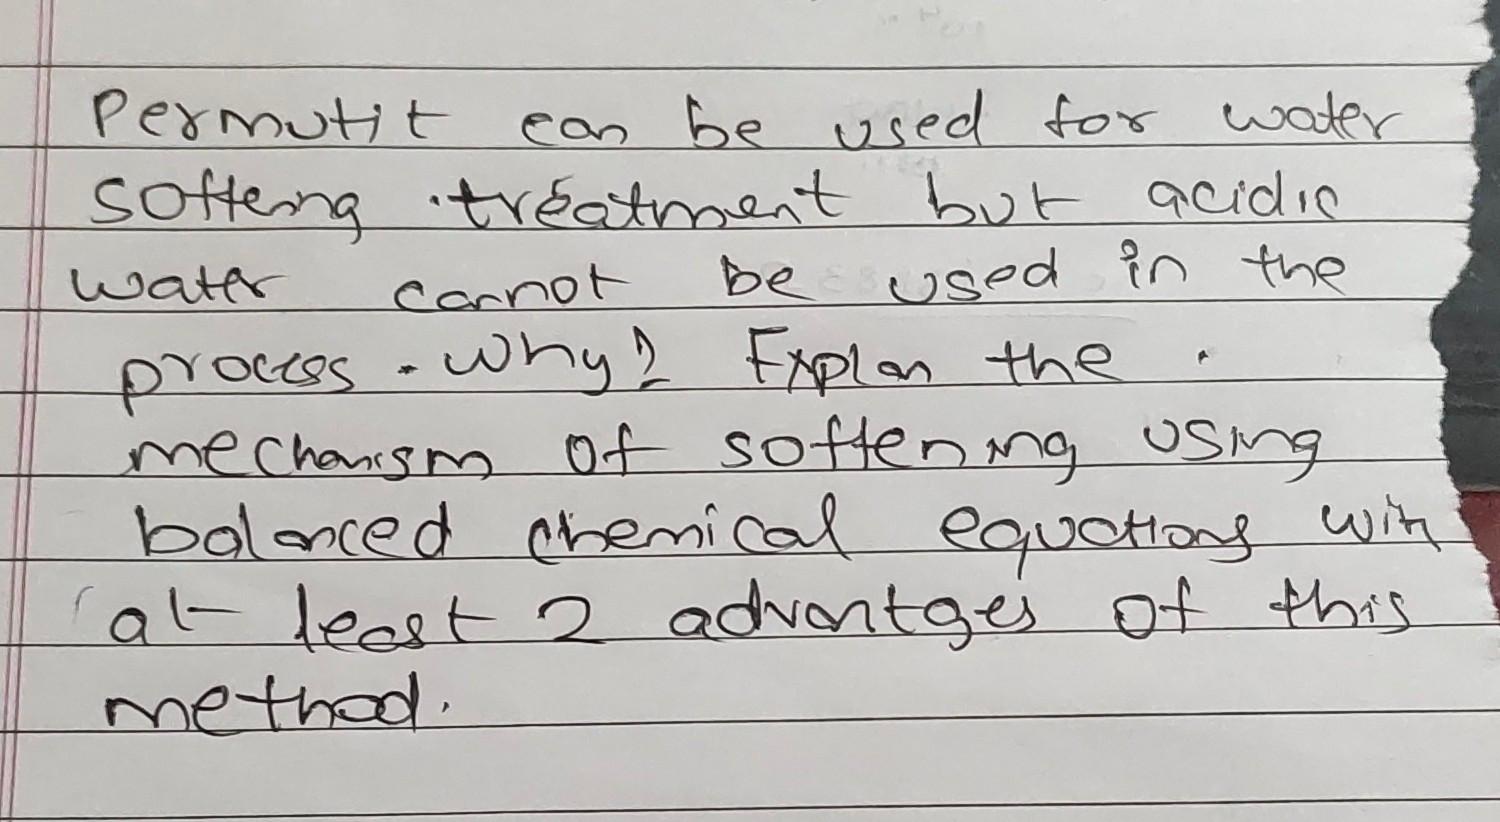 Permutit can be used for water
softeing treatment but acidic
water cannot be used in the
process. Why? Explan the
mechanism of softening using
balanced chemical equations with
at least 2 advantges of this
method.